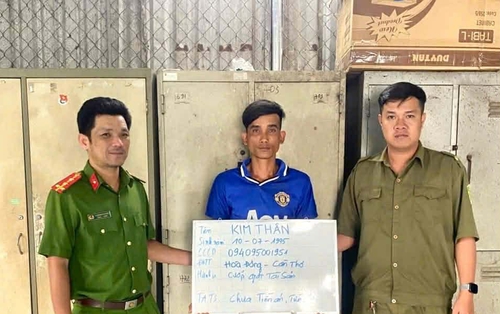 TABI-L
DUY TAN
1671
403
AON
Tên: KIM THÂN
Sinh năm: 10-07-1995
CCCD: 094095001951
HKTT: Hoà Đông - Cần Thơ
Hành vi: Cướp giật Tài Sản
TATS: Chưa Tiền án, Tiền